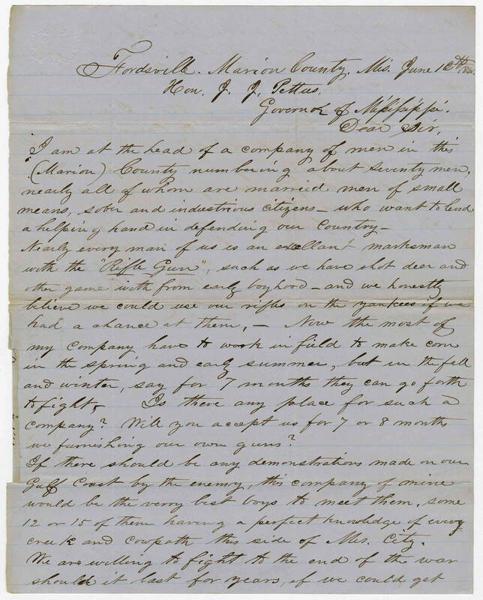 Fordsville, Marion County, Mis. June 18th
Hon. J. J. Pettus,
Governor of Mississippi.
Dear Sir,
I am at the head of a company of men in this
(Marion) County numbering about seventy men,
nearly all of whom are married men of small
means, sober and industrious citizens – who want to lend
a helping hand in defending our Country –
Nearly every man of us is an excellant marksman
with the "Rifle Gun", such as we have shot deer and
other game with from early boyhood – and we honestly
believe we could use our rifles on the yankees if we
had a chance at them, – Now the most of
my company have to work in field to make corn
in the spring and early summer, but in the fall
and winter, say for 7 month they can go forth
to fight, Is there any place for such a
company? Will you accept us for 7 or 8 months
we furnishing our own guns?
If there should be any demonstrations made on our
Gulf Coast by the enemy, this company of mine
would be the very best boys to meet them, some
12 or 15 of them having a perfect knowledge of every
creek and cowpath this side of Mis. City.
We are willing to fight to the end of the war
should it last for years, if we could get